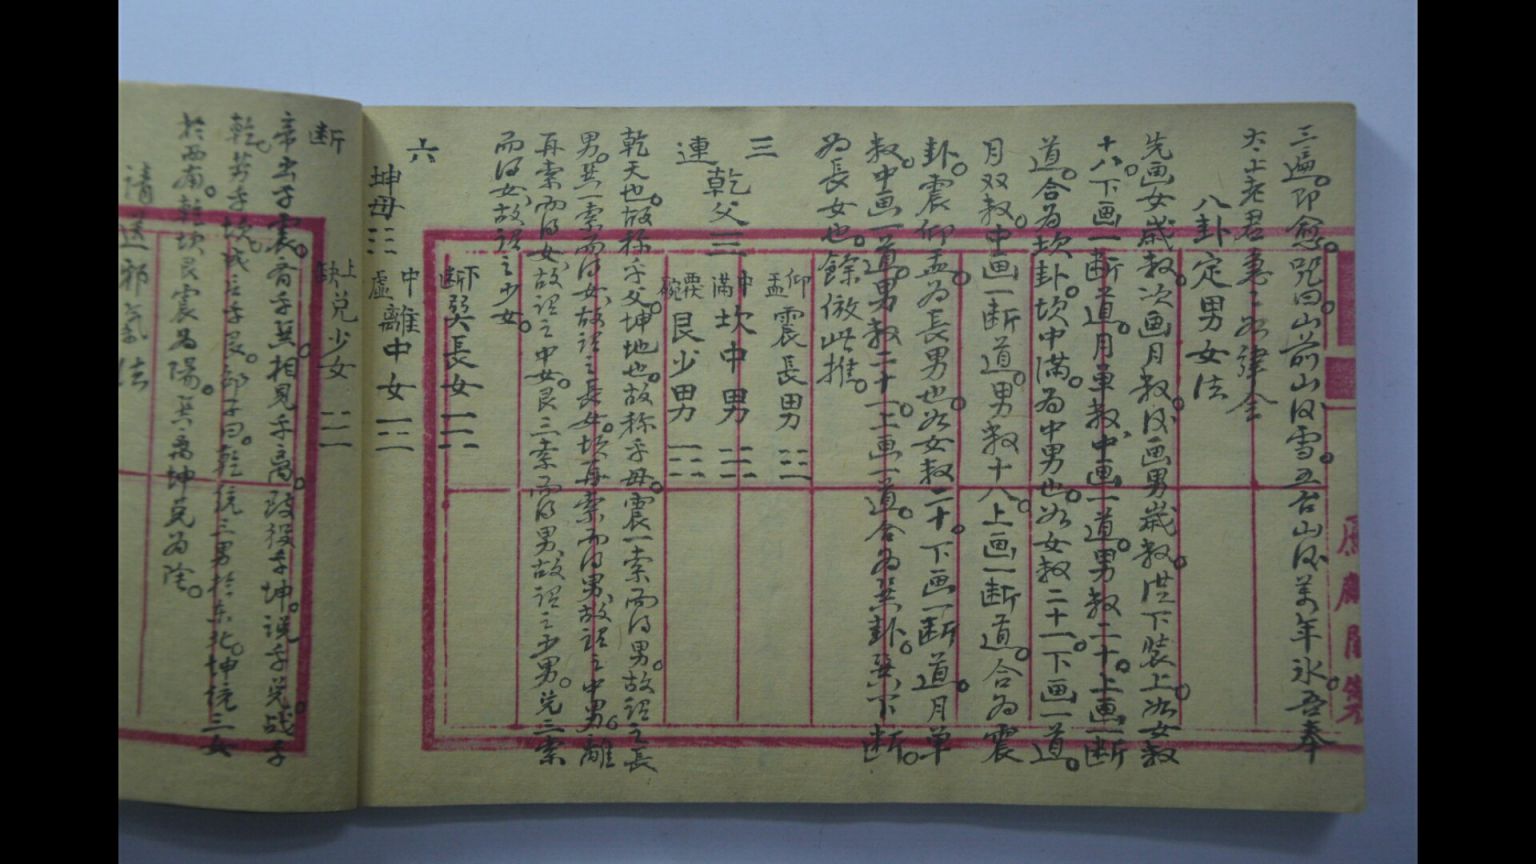 三遍。即愈。咒曰。山前山後雪。五台山後萬年氷。吾奉
太上老君急〻如律令
八卦定男女法
先画女歲数。次画月数。後画男歲数。從下裝上。如女数
十八。下画一断道。月单数。中画一道。男数二十。上画一断
道。合為坎卦。坎中滿。為中男也。如女数二十一。下画一道。
月双数。中画一断道。男数十八。上画一断道。合為震
卦。震仰盂。為長男也。如女数二十。下画一断道。月单
数。中画一道。男数二十一。上画一道。合為巽卦。巽下断。
為長女也。餘倣此推。
三連 乾父☰
仰盂 震長男☳
中滿 坎中男☵
覆碗 艮少男☶
乾天也。故称乎父。坤地也。故称乎母。震一索而得男。故謂之長
男。巽一索而得女。故謂之長女。坎再索而得男。故謂之中男。離
再索而得女。故謂之中女。艮三索而得男。故謂之少男。兌三索
而得女。故謂之少女。
六断 坤母☷
下断 巽長女☴
中虛 離中女☲
上缺 兌少女☱
帝出乎震。齊乎巽。相見乎离。致役乎坤。说乎兌。战乎
乾。劳乎坎。成言乎艮。邵子曰。乾统三男於东北。坤统三女
於西南。乾坎艮震為陽。巽离坤兌为陰。
請送邪氣法